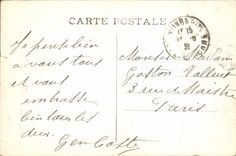 CARTE POSTALE
Je pense bien
à vous tous
et vous
embrasse
bien tous les
deux.
Gen Coste
Monsieur Madame
Gaston Valleut
3 rue de Maistre
Paris